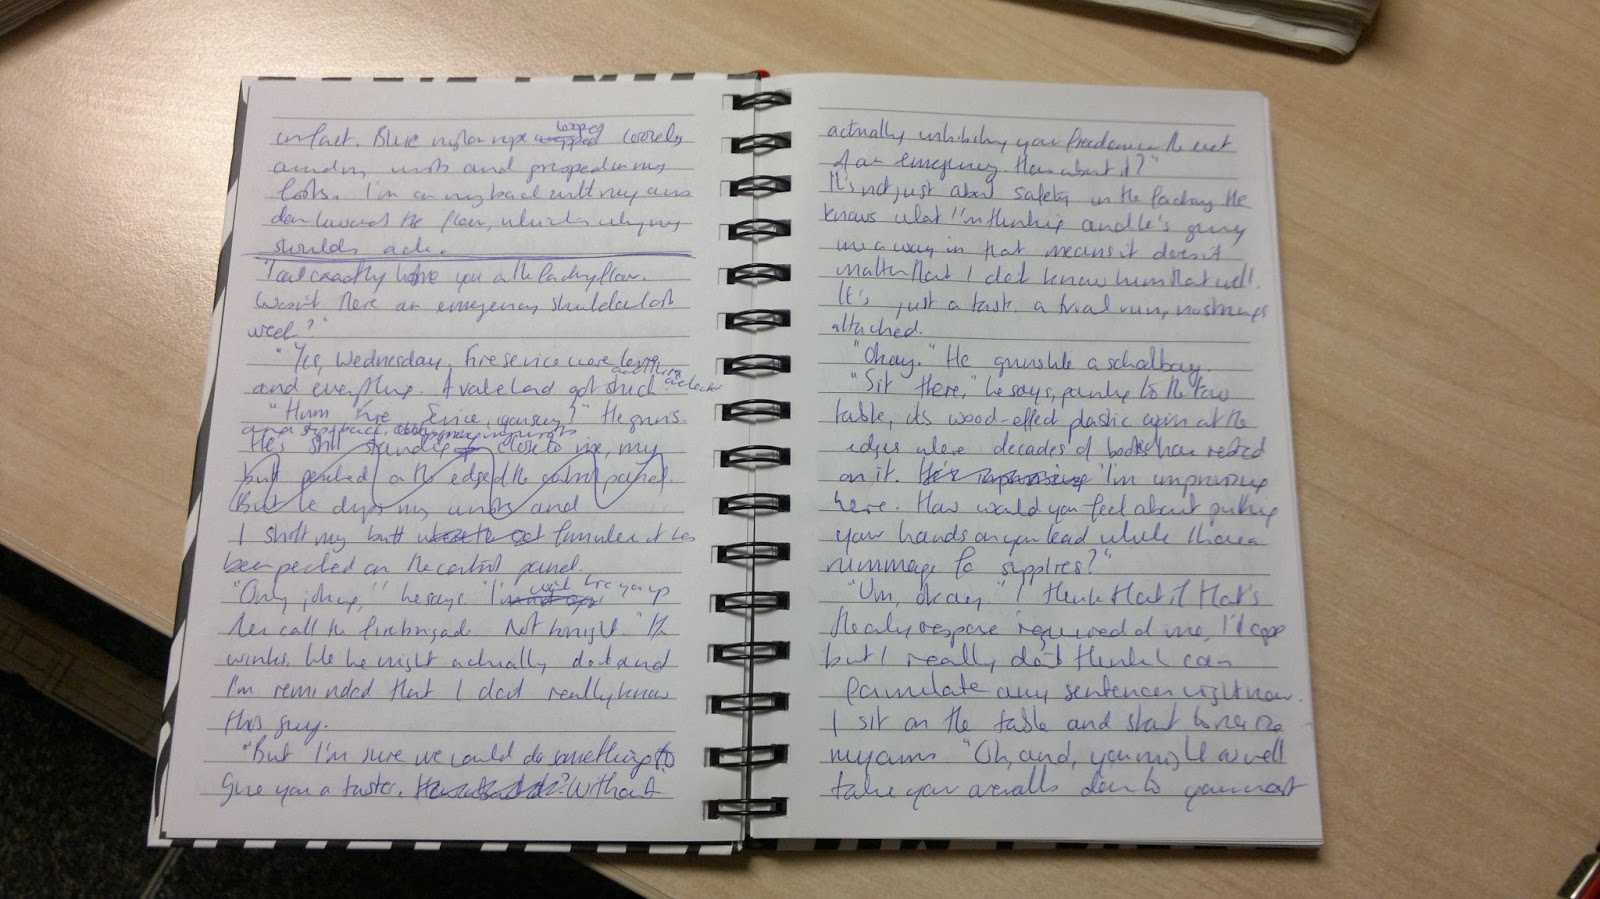 in fact. Blue nylon rope wrapped looped loosely
around my wrists and propped on my
boots. I'm on my back with my arms
down toward the floor, which is why my
shoulders ache.
"I can't exactly tie you on the factory floor.
Wasn't there an emergency shutdown last
week?"
"Yes, Wednesday, fire service were
and everything. A lad got stuck
"Hmm, fire service, you say?" He grins.
and steps back,
He's still standing close to me, my
butt perched on the edge of the control panel.
But he drops my wrists and
I shift my butt from where it has
been perched on the control panel.
"Only joking," he says. "I won't tie you up
then call the fire brigade. Not tonight." He
winks like he might actually do it and
I'm reminded that I don't really know
this guy.
"But I'm sure we could do something to
give you a taster. How about it? Without
actually inhibiting your freedom in the event
of an emergency. How about it?"
It's not just about safety in the factory. He
knows what I'm thinking and he's giving
me a way in that means it doesn't
matter that I don't know him that well.
It's just a task, a trial run, no strings
attached.
"Okay." He grins like a schoolboy.
"Sit there," he says, pointing to the
table, its wood-effect plastic worn at the
edges where decades of have rested
on it. He's improvising "I'm improvising
here. How would you feel about putting
your hands on your head while I have a
rummage for supplies?"
"Um, okay." I think that if that's
the only response required of me, I'll cope
but I really don't think I can
formulate any sentences right now.
I sit on the table and start to raise
my arms. "Oh, and, you might as well
take your overalls down to your waist